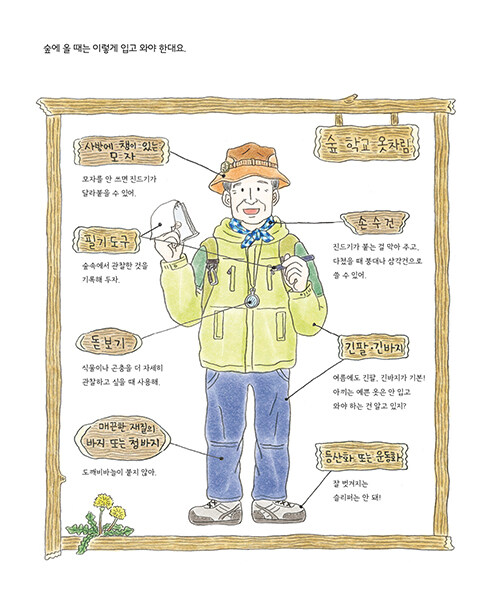 숲에 올 때는 이렇게 입고 와야 한대요.
숲 학교 옷차림
사방에 챙이 있는
모자
모자를 안 쓰면 진드기가
달라붙을 수 있어.
손수건
진드기가 붙는 걸 막아 주고,
다쳤을 때 붕대나 삼각건으로
쓸 수 있어.
필기도구
숲속에서 관찰한 것을
기록해 두자.
돋보기
식물이나 곤충을 더 자세히
관찰하고 싶을 때 사용해.
긴팔·긴바지
여름에도 긴팔, 긴바지가 기본!
아끼는 예쁜 옷은 안 입고
와야 하는 건 알고 있지?
매끈한 재질의
바지 또는 청바지
도깨비바늘이 붙지 않아.
등산화 또는 운동화
잘 벗겨지는
슬리퍼는 안 돼!